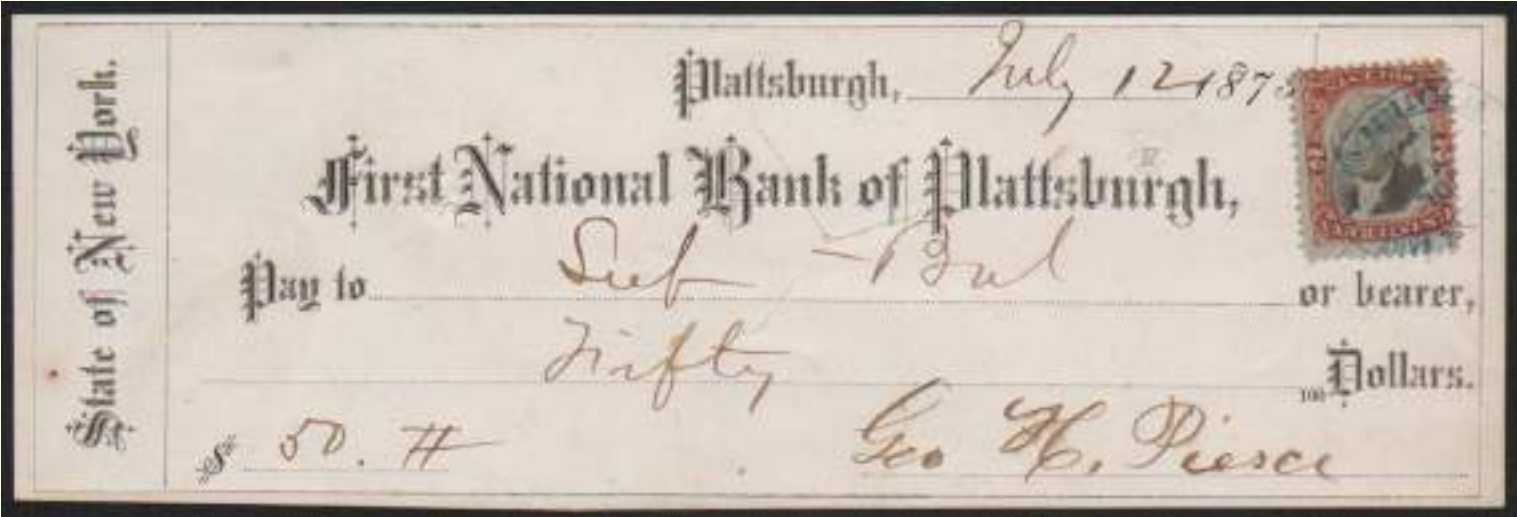 State of New York.
Plattsburgh, July 12 187
First National Bank of Plattsburgh,
Pay to or bearer,
Fifty
100 Dollars.
$ 50. Geo H. Pierce